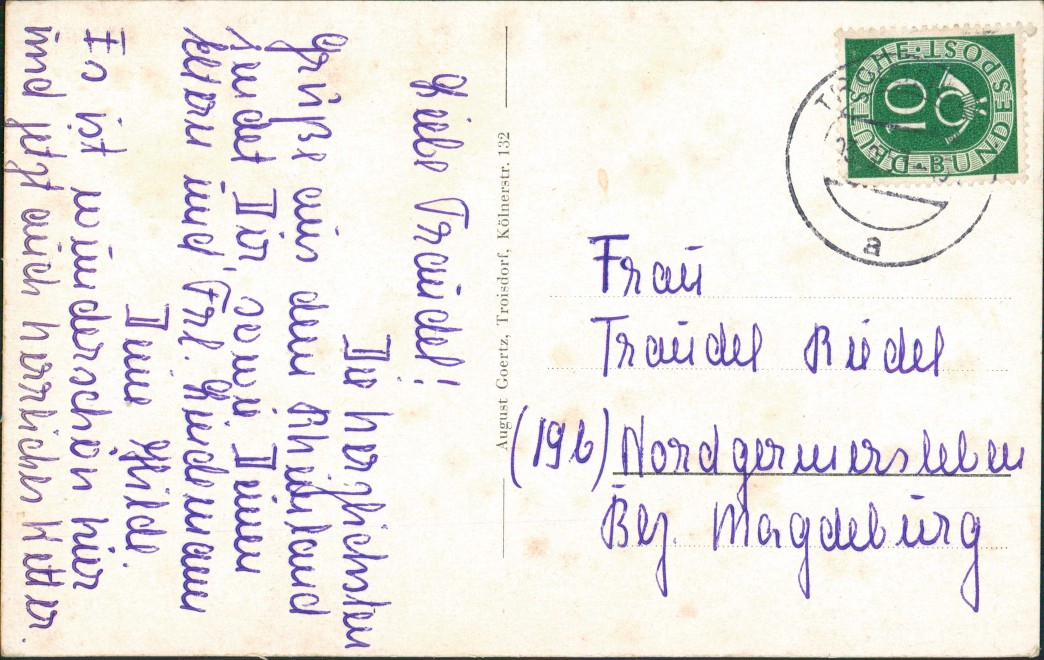 Liebe Traudel!
Die herzlichsten
Grüße aus dem Rheinland
sendet Dir, sowie Deinen
Eltern und Frl.
Deine Hilde.
Es ist wunderschön hier
und jetzt auch herrliches Wetter.
August Goertz, Troisdorf, Kölnerstr. 132
DEUTSCHE·POST
10
BUNDES
a
Frau
Traudel Riedel
(19b) Nordgermersleben
Bez. Magdeburg